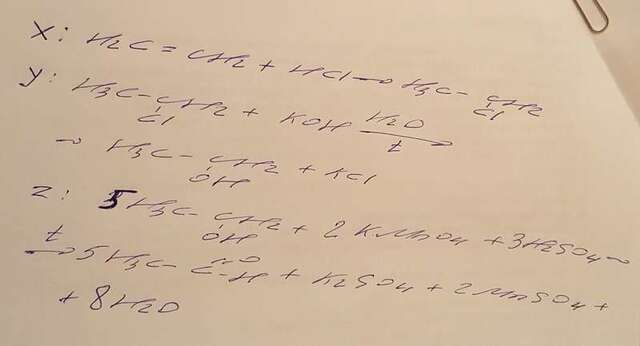 X: H2C = CH2 + HCl → H3C - CH2
Cl
Y: H3C - CH2 + KOH H2O
Cl t
→ H3C - CH2 + KCl
OH
Z: 5H3C - CH2 + 2 KMnO4 + 3H2SO4 →
OH
t → 5H3C - C - H + K2SO4 + 2MnSO4 +
=O
+ 8H2O